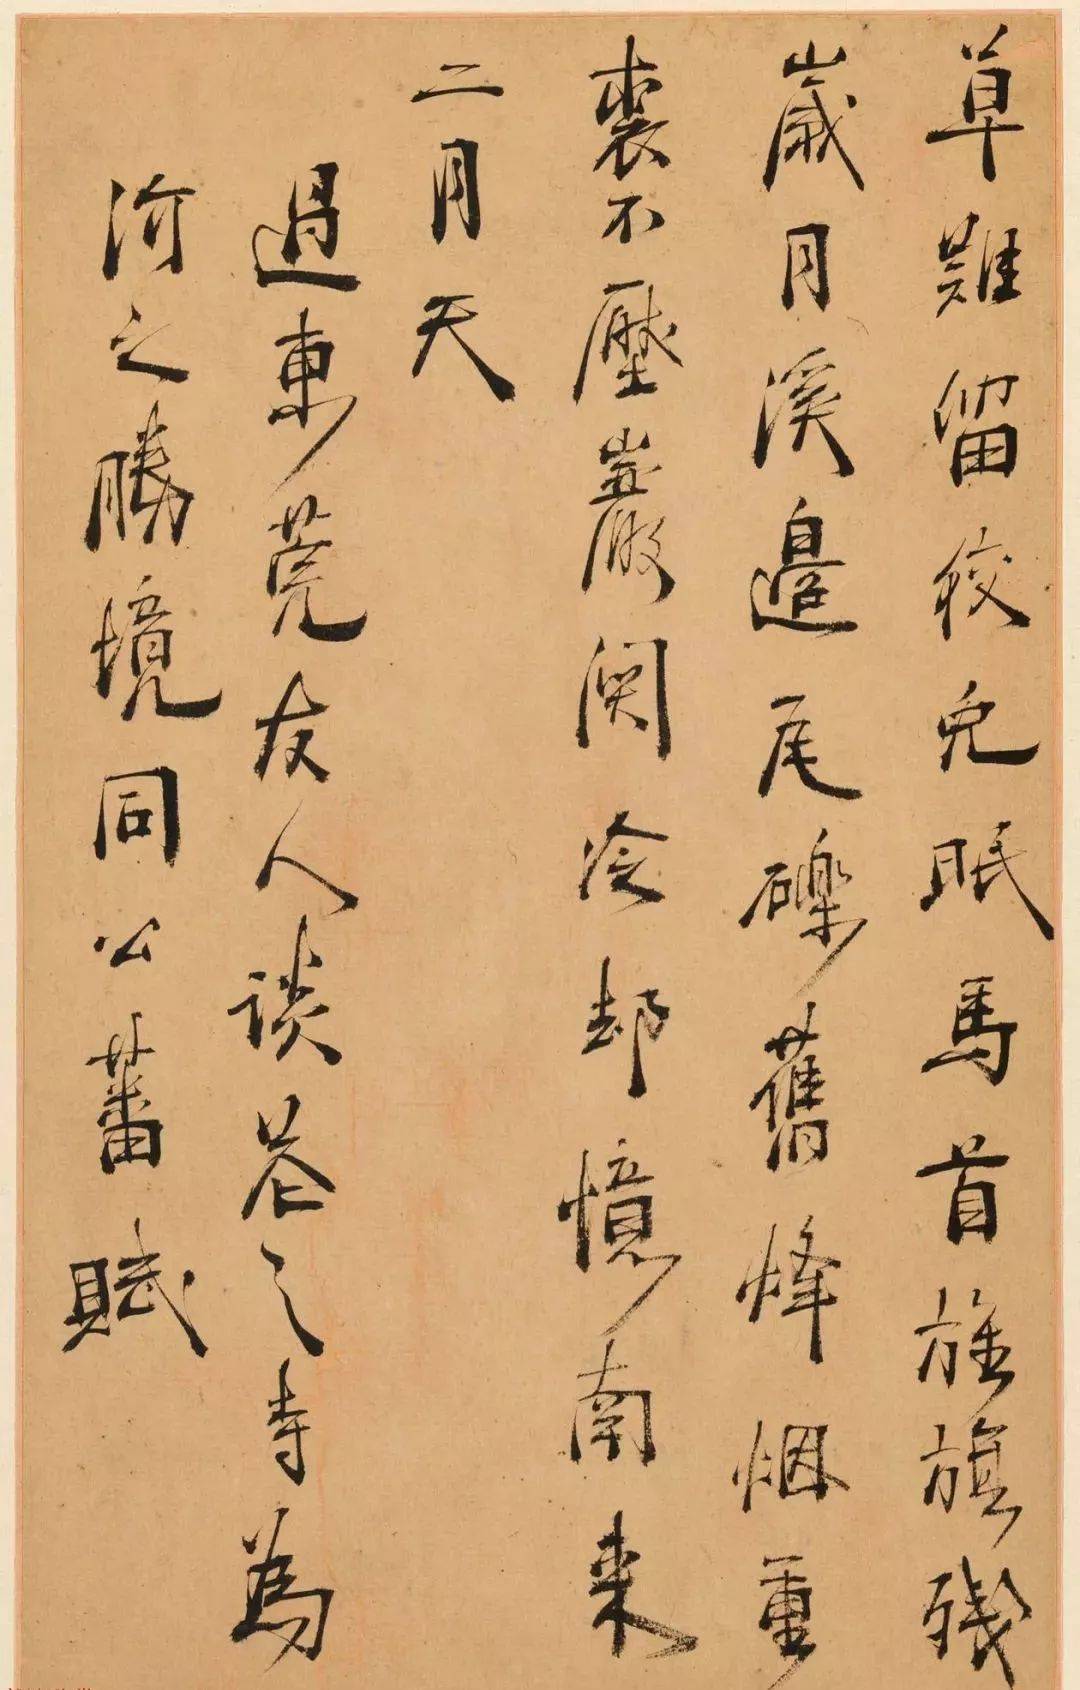 草難留狡兔眠馬首旌旗殘
歲月溪邊瓦礫舊烽烟重
裘不壓巖関冷却憶南来
二月天
過東莞友人談茶之寺為
河之勝境同公蕃賦